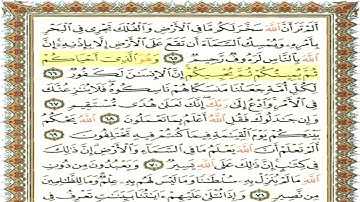 أَلَمْ تَرَ أَنَّ ٱللَّهَ سَخَّرَ لَكُم مَّا فِى ٱلْأَرْضِ وَٱلْفُلْكَ تَجْرِى فِى ٱلْبَحْرِ
بِأَمْرِهِۦ وَيُمْسِكُ ٱلسَّمَآءَ أَن تَقَعَ عَلَى ٱلْأَرْضِ إِلَّا بِإِذْنِهِۦٓ إِنَّ
ٱللَّهَ بِٱلنَّاسِ لَرَءُوفٌ رَّحِيمٌ ٦٥ وَهُوَ ٱلَّذِىٓ أَحْيَاكُمْ
ثُمَّ يُمِيتُكُمْ ثُمَّ يُحْيِيكُمْ إِنَّ ٱلْإِنسَٰنَ لَكَفُورٌ ٦٦
لِّكُلِّ أُمَّةٍ جَعَلْنَا مَنسَكًا هُمْ نَاسِكُوهُ فَلَا يُنَٰزِعُنَّكَ
فِى ٱلْأَمْرِ وَٱدْعُ إِلَىٰ رَبِّكَ إِنَّكَ لَعَلَىٰ هُدًى مُّسْتَقِيمٍ ٦٧
وَإِن جَٰدَلُوكَ فَقُلِ ٱللَّهُ أَعْلَمُ بِمَا تَعْمَلُونَ ٦٨ ٱللَّهُ يَحْكُمُ
بَيْنَكُمْ يَوْمَ ٱلْقِيَٰمَةِ فِيمَا كُنتُمْ فِيهِ تَخْتَلِفُونَ ٦٩
أَلَمْ تَعْلَمْ أَنَّ ٱللَّهَ يَعْلَمُ مَا فِى ٱلسَّمَآءِ وَٱلْأَرْضِ إِنَّ ذَٰلِكَ
فِى كِتَٰبٍ إِنَّ ذَٰلِكَ عَلَى ٱللَّهِ يَسِيرٌ ٧٠ وَيَعْبُدُونَ مِن دُونِ
ٱللَّهِ مَا لَمْ يُنَزِّلْ بِهِۦ سُلْطَٰنًا وَمَا لَيْسَ لَهُم بِهِۦ عِلْمٌ وَمَا لِلظَّٰلِمِينَ
مِن نَّصِيرٍ ٧١ وَإِذَا تُتْلَىٰ عَلَيْهِمْ ءَايَٰتُنَا بَيِّنَٰتٍ تَعْرِفُ فِى